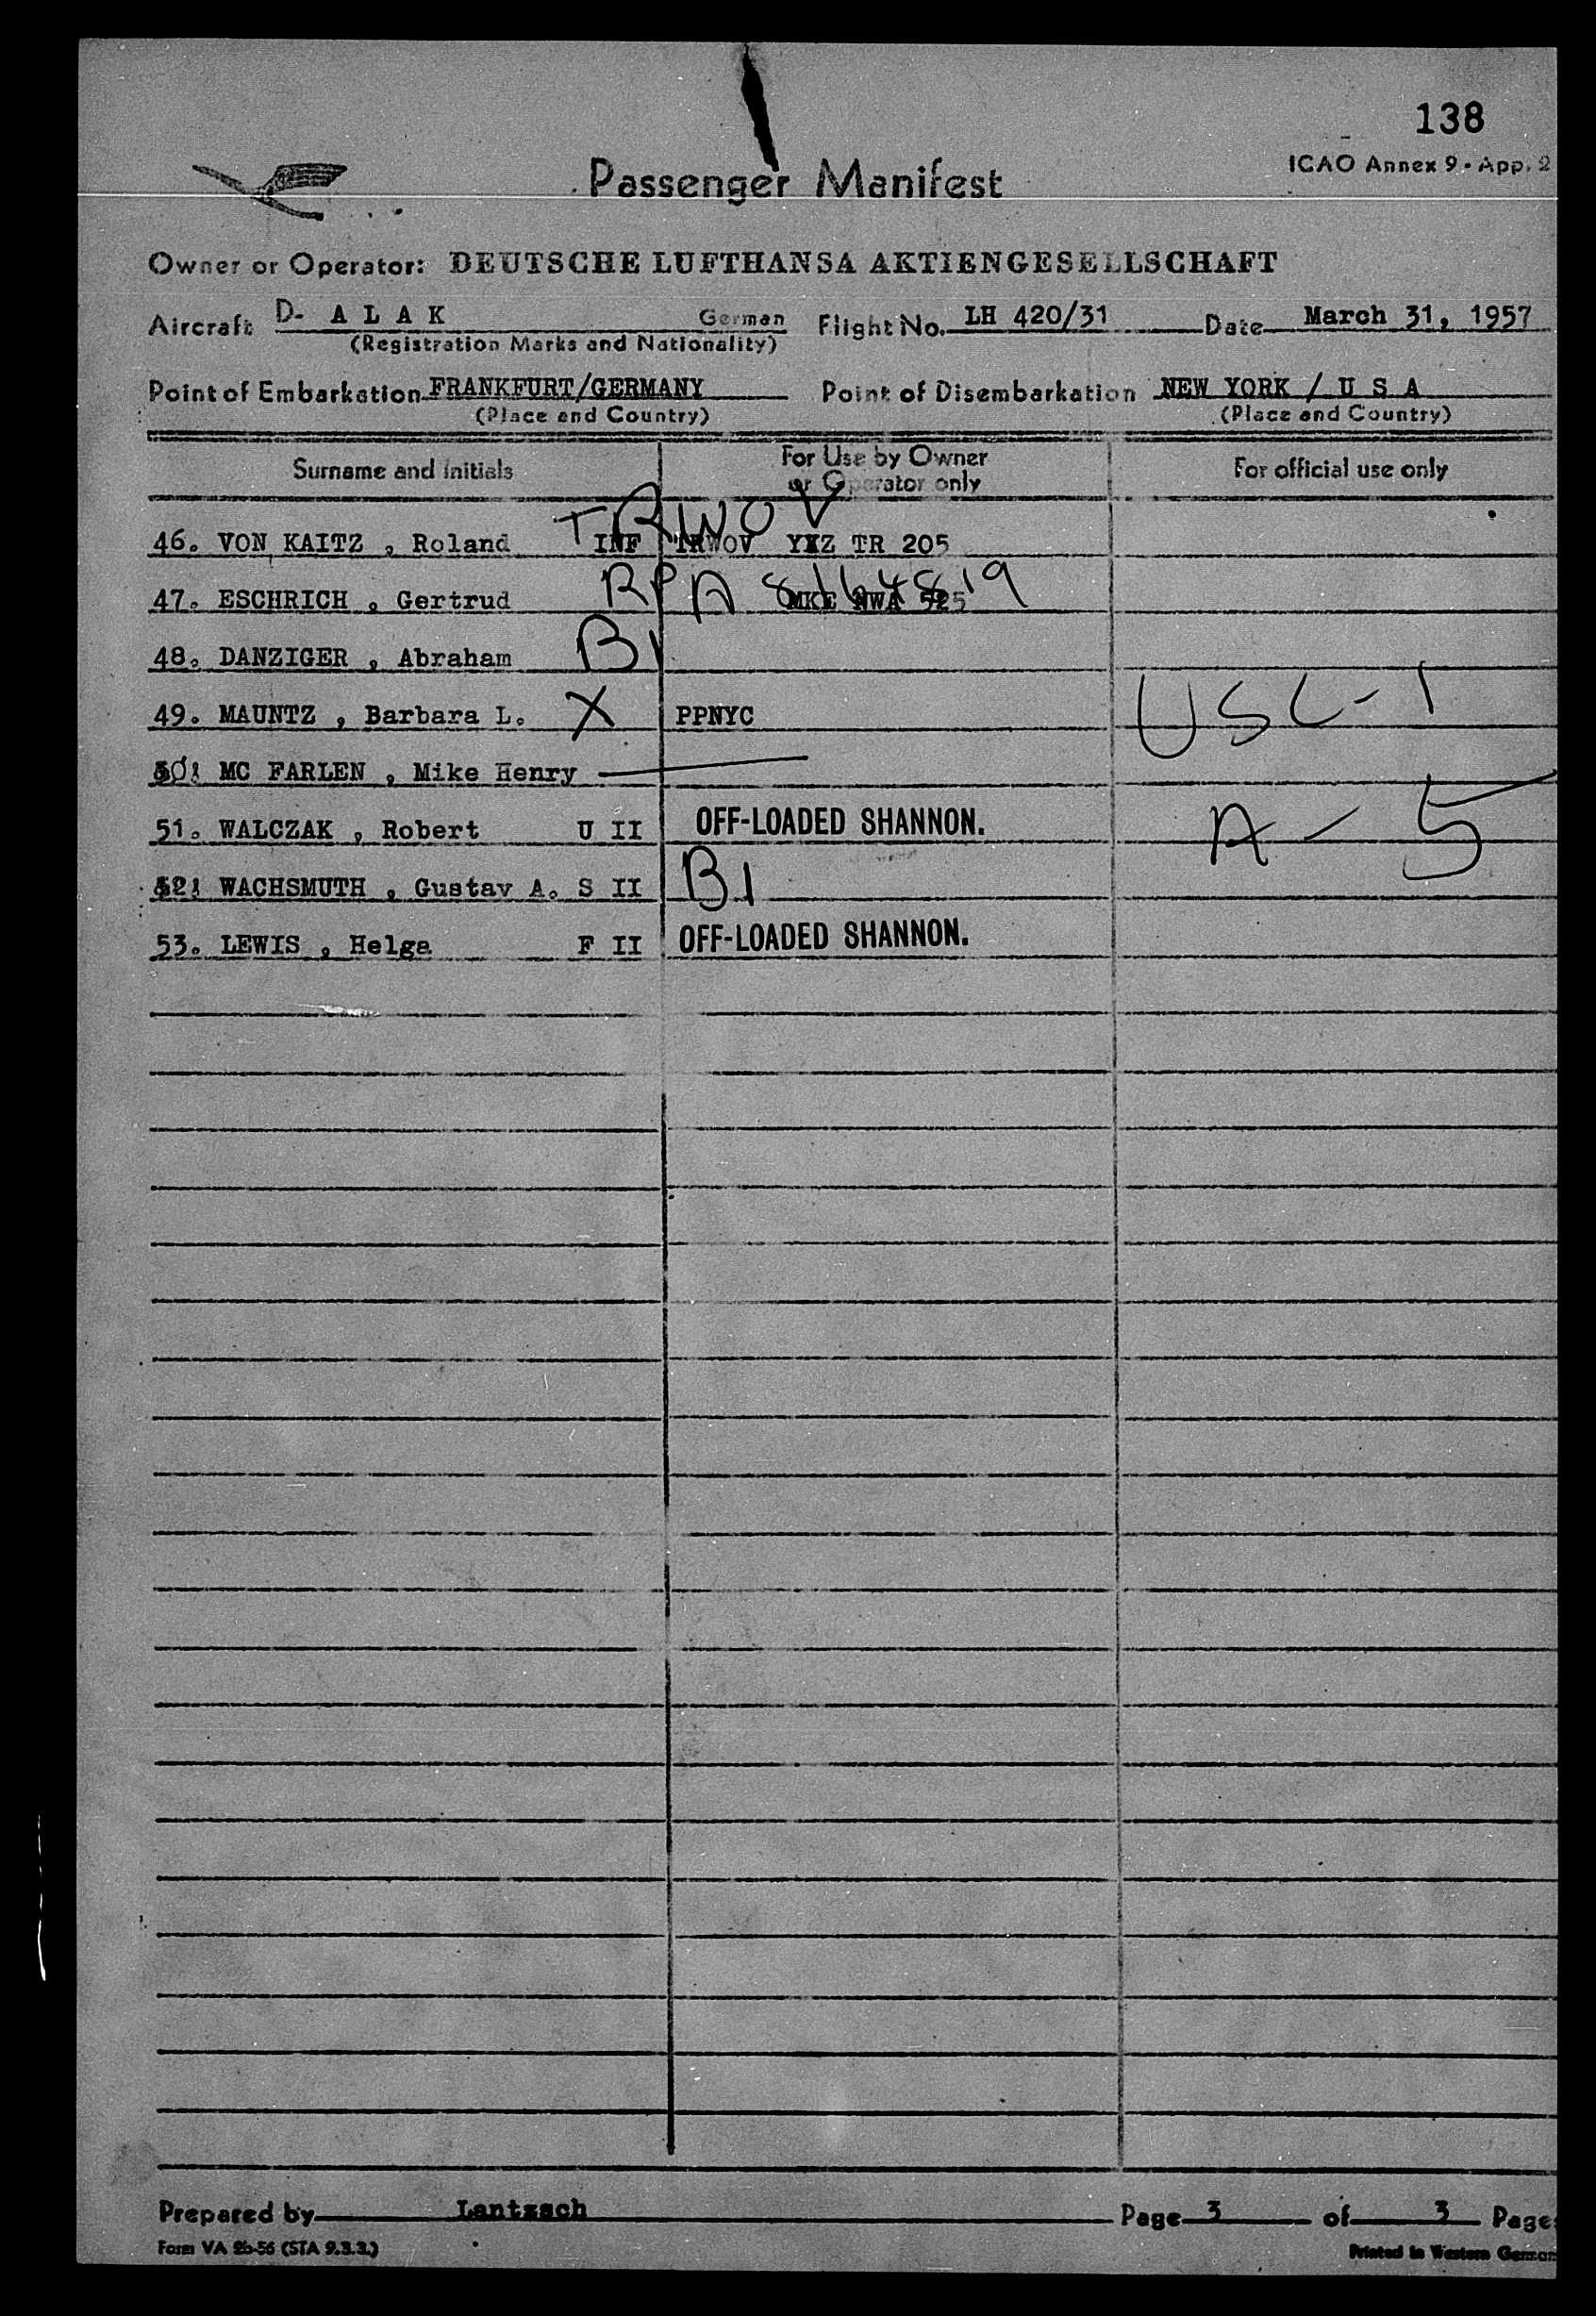 138
ICAO Annex 9 • App. 2
Passenger Manifest
Owner or Operator: DEUTSCHE LUFTHANSA AKTIENGESELLSCHAFT
Aircraft D- A L A K German Flight No. LH 420/31 Date March 31, 1957
(Registration Marks and Nationality)
Point of Embarkation FRANKFURT/GERMANY Point of Disembarkation NEW YORK / U S A
(Place and Country) (Place and Country)
Surname and initials For Use by Owner or Operator only For official use only
TRWOV
46. VON KAITZ , Roland INF TRWOV YXZ TR 205
47. ESCHRICH , Gertrud RPA 8164819 MKE NWA 525
48. DANZIGER , Abraham B1
49. MAUNTZ , Barbara L. X PPNYC USC-1
50. MC FARLEN , Mike Henry
51. WALCZAK , Robert U II OFF-LOADED SHANNON. A - 5
52. WACHSMUTH , Gustav A. S II B1
53. LEWIS , Helga F II OFF-LOADED SHANNON.
Prepared by Lantzsch Page 3 of 3 Page
Form VA 2b-56 (STA 9.3.3.) Printed in Western